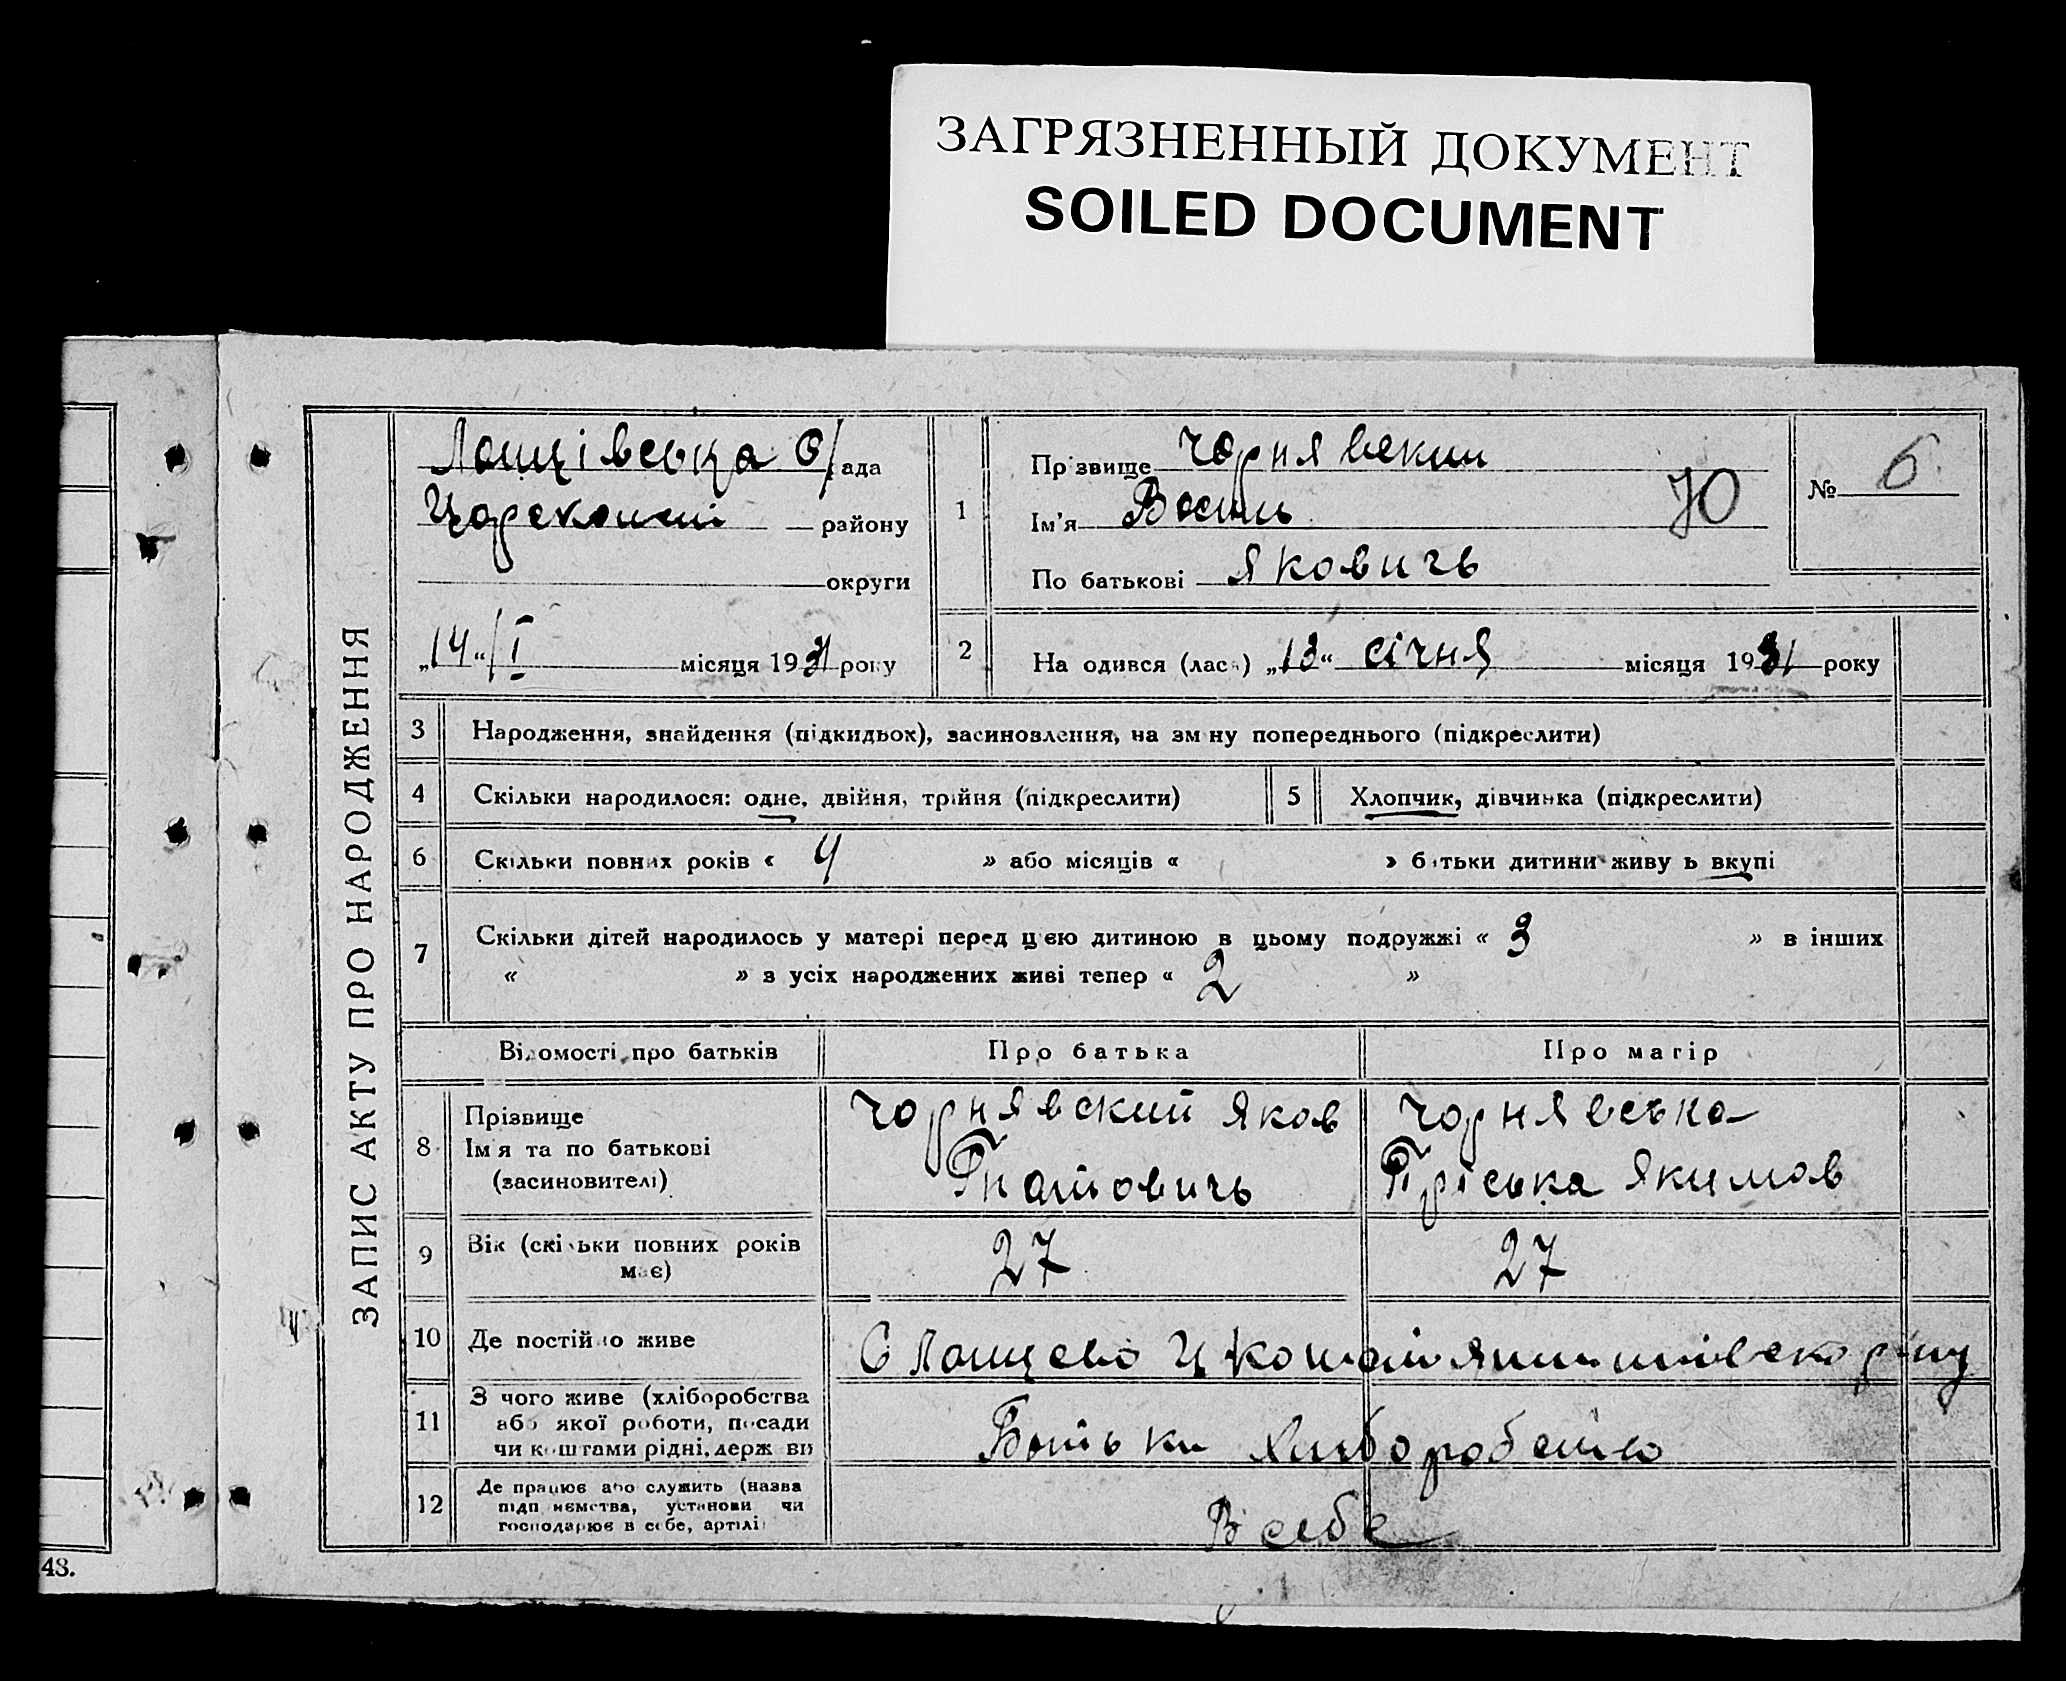 ЗАГРЯЗНЕННЫЙ ДОКУМЕНТ
SOILED DOCUMENT
ЗАПИС АКТУ ПРО НАРОДЖЕННЯ
Лощівська С/ада
районy
округи
„14“/I місяця 1931 року
1
Прізвище Чорнявский
Ім'я
По батькові Яковичь
70
№ 6
2
На одився (лась) „13“ січня місяця 1931 року
3 Народження, знайдення (підкидьок), засиновлення, на зм ну попереднього (підкреслити)
4 Скільки народилося: одне, двійня, трійня (підкреслити)
5 Хлопчик, дівчинка (підкреслити)
6 Скільки повних років « 4 » або місяців « » батьки дитини живу ь вкупі
7 Скільки дітей народилось у матері перед цією дитиною в цьому подружжі « 3 » в інших
« » з усіх народжених живі тепер « 2 »
Відомості про батьків
Про батька
Про матір
8 Прізвище
Ім я та по батькові
(засиновителі)
Чорнявский Яков
Гнатовичь
Чорнявська
Пріська Якимов
9 Вік (скільки повних років
має)
27
27
10 Де постійно живе
С Лощево
11 З чого живе (хліборобства
або якої роботи, посади
чи коштами рідні, держ ви
Батьки
12 Де працює або служить (назва
підп иємства, установи чи
господарює в себе, артілі
В себе
43.